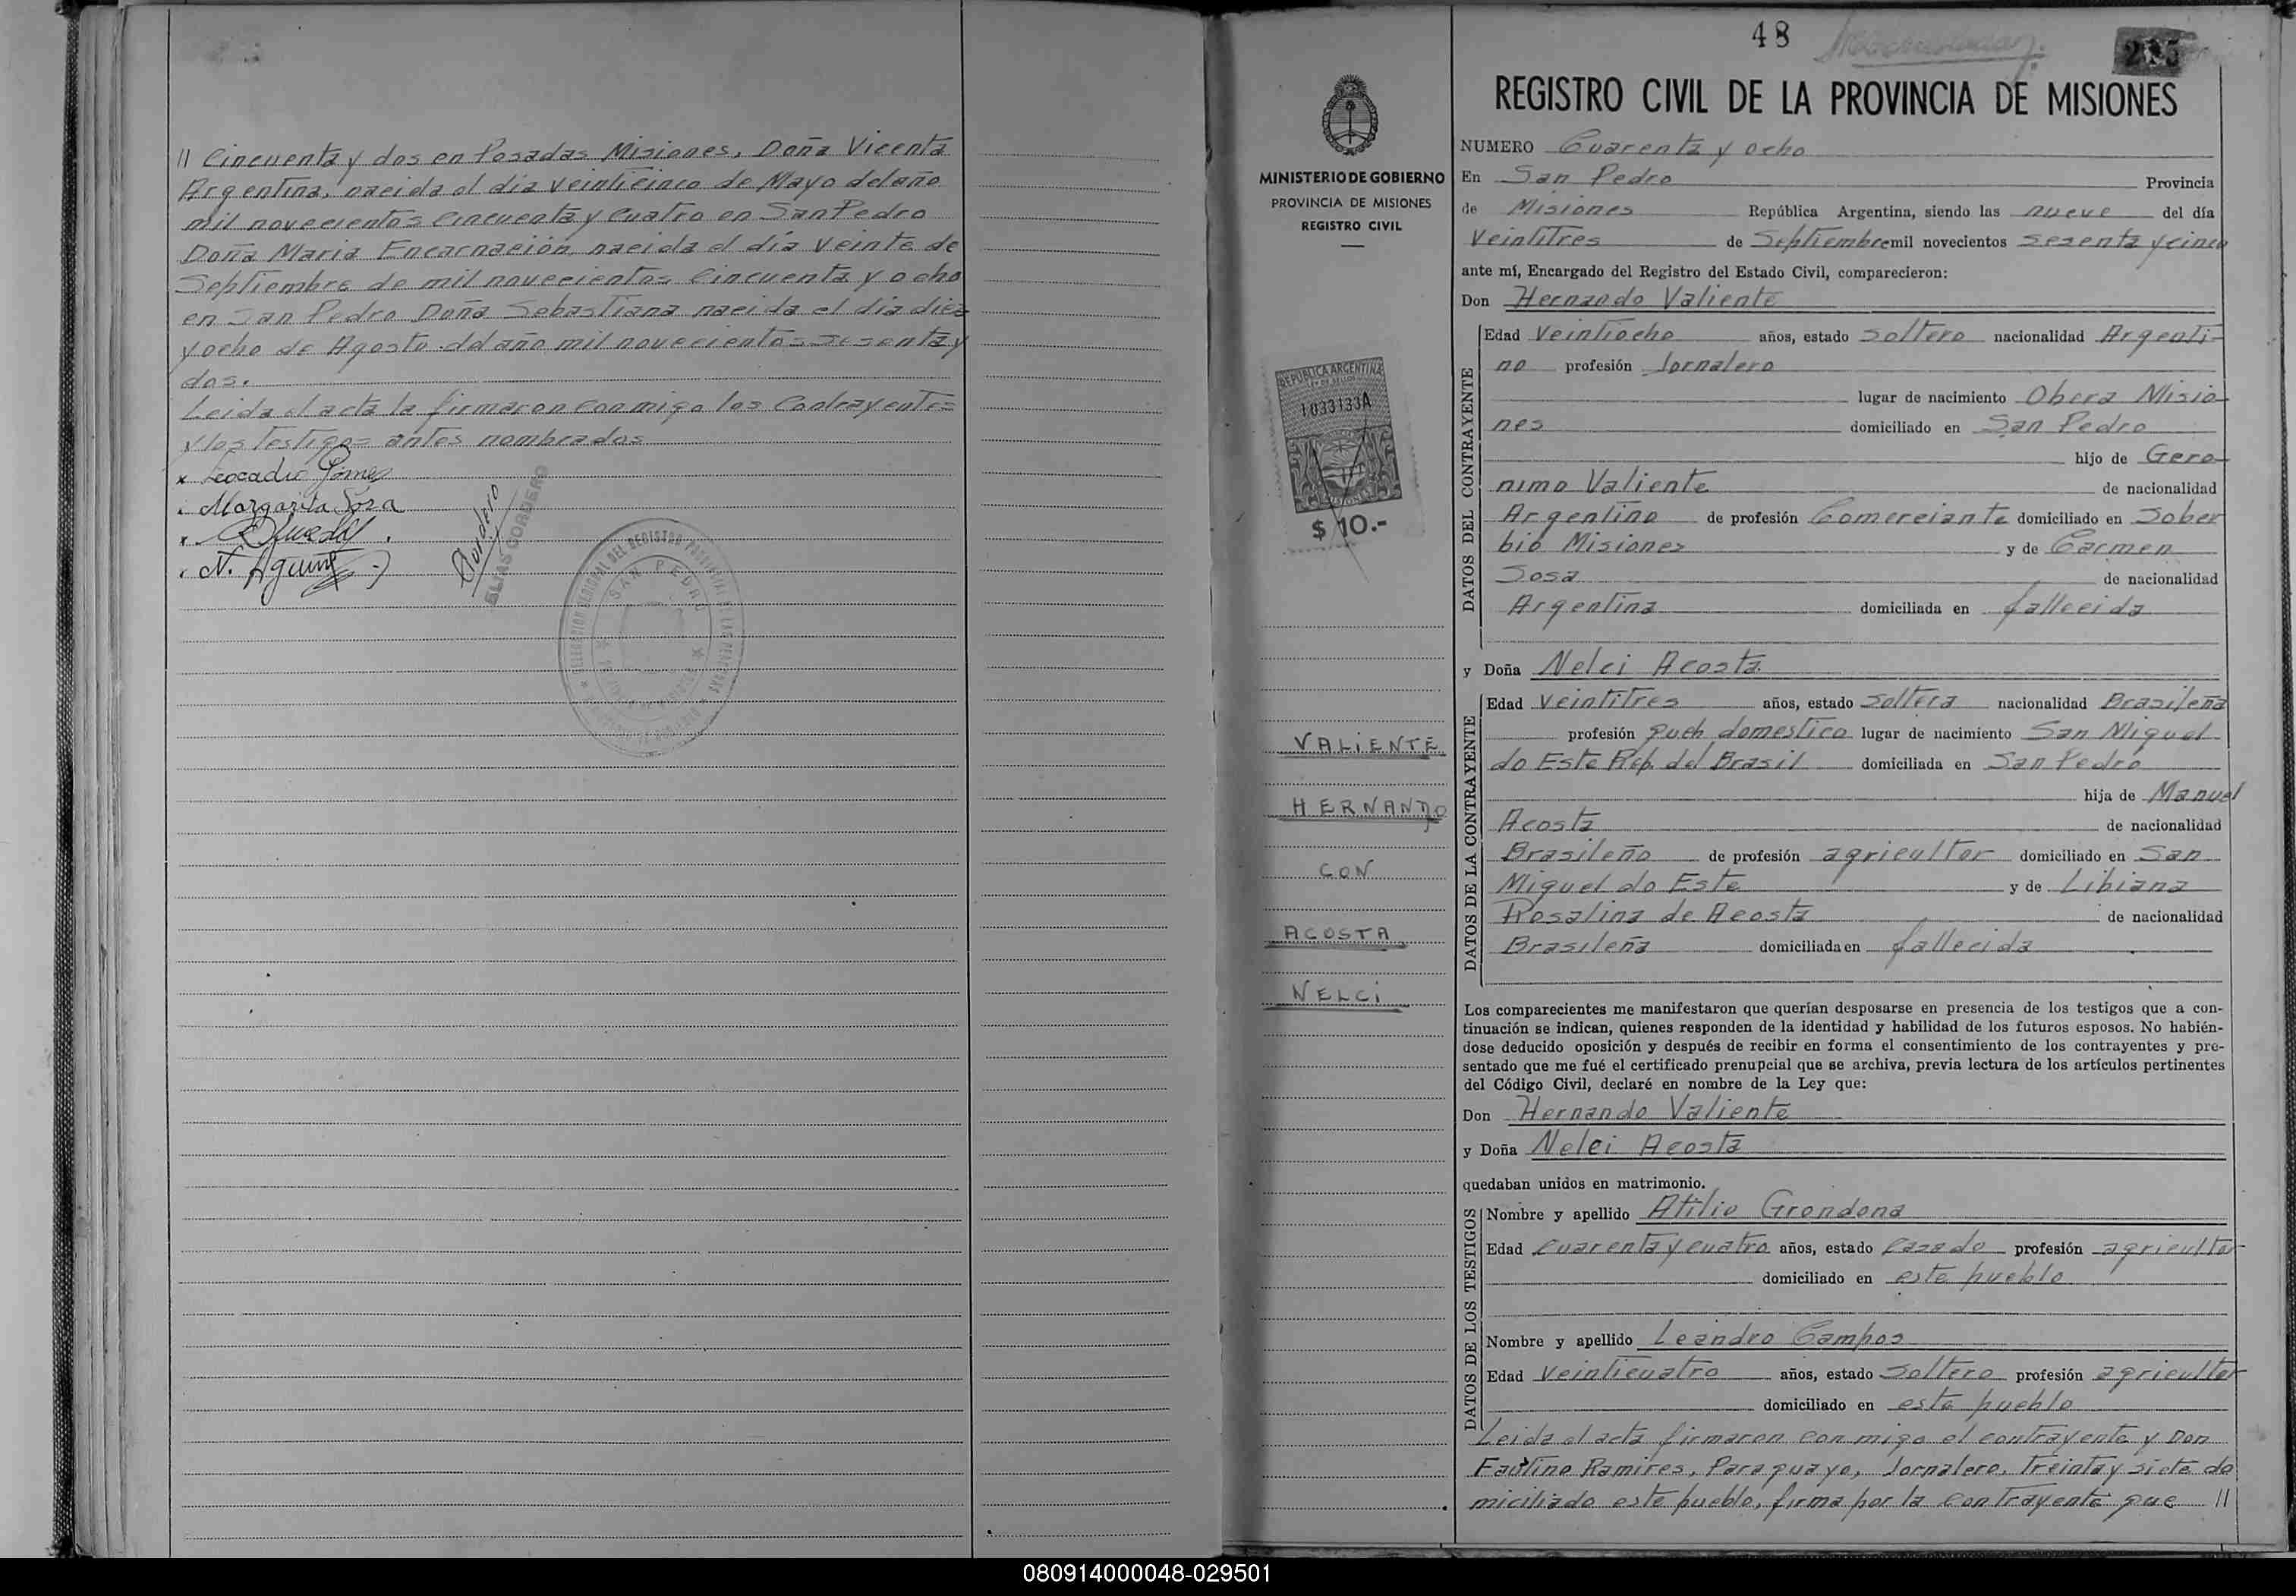 // Cincuenta y dos en Posadas Misiones, Doña Vicenta
Argentina, nacida el dia veinticinco de Mayo del año
mil novecientos Cincuenta y Cuatro en San Pedro
Doña Maria Encarnación nacida el día veinte de
Septiembre de mil novecientos Cincuenta y ocho
en San Pedro Doña Sebastiana nacida el día diez
y ocho de Agosto del año mil novecientos sesenta y
dos.
Leida el acta la firmaron con migo los Contrayentes
y los testigos antes nombrados
x Leocadio Gómez
Margarita Soza
ELIAS CORDERO
SAN PEDRO
48
REGISTRO CIVIL DE LA PROVINCIA DE MISIONES
MINISTERIO DE GOBIERNO
PROVINCIA DE MISIONES
REGISTRO CIVIL
REPUBLICA ARGENTINA
1033133A
MISIONES
$ 10.-
VALIENTE
HERNANDO
CON
ACOSTA
NELCI
NUMERO Cuarenta y ocho
En San Pedro Provincia
de Misiones República Argentina, siendo las nueve del día
Veintitres de Septiembre mil novecientos sesenta y cinco
ante mí, Encargado del Registro del Estado Civil, comparecieron:
Don Hernando Valiente
DATOS DEL CONTRAYENTE
Edad Veintiocho años, estado soltero nacionalidad Argenti-
no profesión Jornalero
lugar de nacimiento Obera Misio-
nes domiciliado en San Pedro
hijo de Gero-
nimo Valiente de nacionalidad
Argentino de profesión Comerciante domiciliado en Sober
bio Misiones y de Carmen
Sosa de nacionalidad
Argentina domiciliada en fallecida
y Doña Nelci Acosta
DATOS DE LA CONTRAYENTE
Edad Veintitres años, estado soltera nacionalidad Brasileña
profesión queh domestico lugar de nacimiento San Miguel
do Este Rep. del Brasil domiciliada en San Pedro
hija de Manuel
Acosta de nacionalidad
Brasileño de profesión agricultor domiciliado en San
Miguel do Este y de Libiana
Rosalina de Acosta de nacionalidad
Brasileña domiciliada en fallecida
Los comparecientes me manifestaron que querían desposarse en presencia de los testigos que a con-
tinuación se indican, quienes responden de la identidad y habilidad de los futuros esposos. No habién-
dose deducido oposición y después de recibir en forma el consentimiento de los contrayentes y pre-
sentado que me fué el certificado prenupcial que se archiva, previa lectura de los artículos pertinentes
del Código Civil, declaré en nombre de la Ley que:
Don Hernando Valiente
y Doña Nelci Acosta
quedaban unidos en matrimonio.
DATOS DE LOS TESTIGOS
Nombre y apellido Atilio Grondona
Edad Cuarenta y cuatro años, estado Casado profesión agricultor
domiciliado en este pueblo
Nombre y apellido Leandro Campos
Edad Veinticuatro años, estado Soltero profesión agricultor
domiciliado en este pueblo
Leida el acta firmaron con migo el contrayente y Don
Faustino Ramires, Paraguayo, Jornalero, treinta y siete do
miciliado este pueblo, firma por la contrayente que //
080914000048-029501